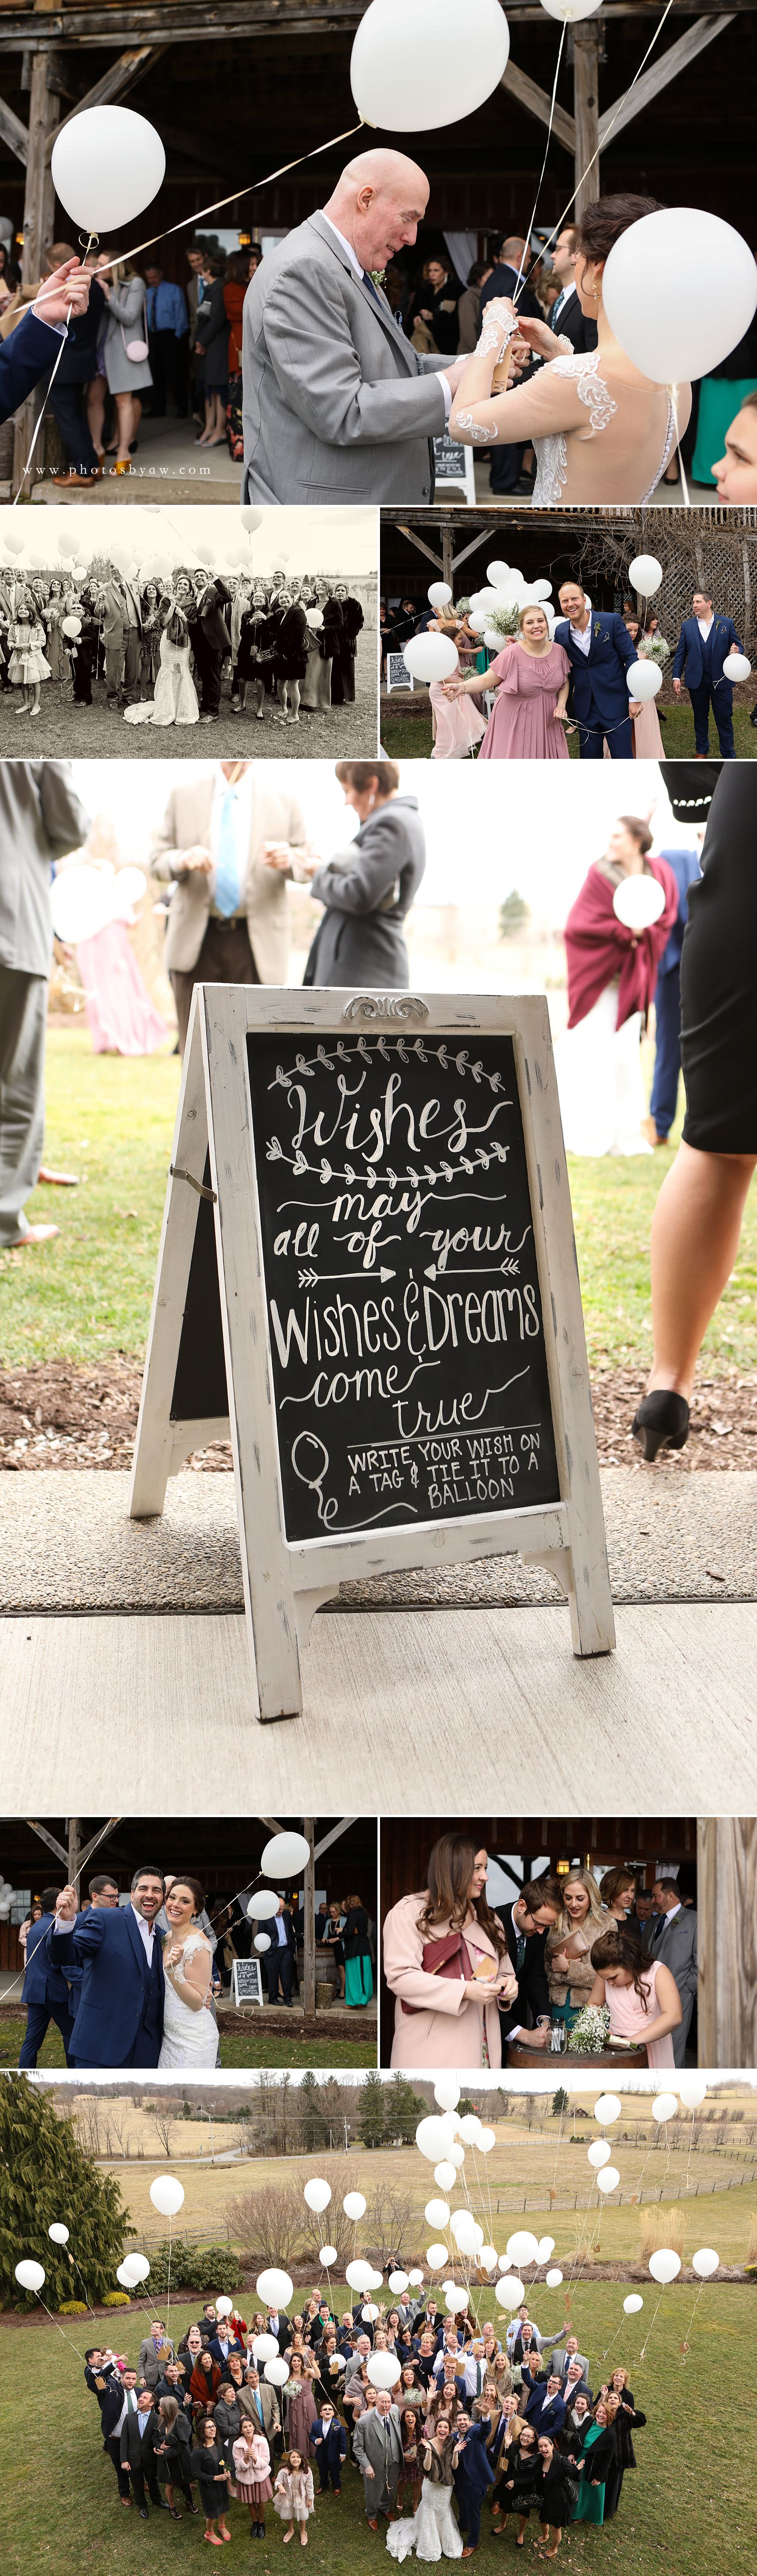 www.photosbyaw.com
Wishes
may
all of your
Wishes & Dreams
come
true
WRITE YOUR WISH ON
A TAG & TIE IT TO A
BALLOON